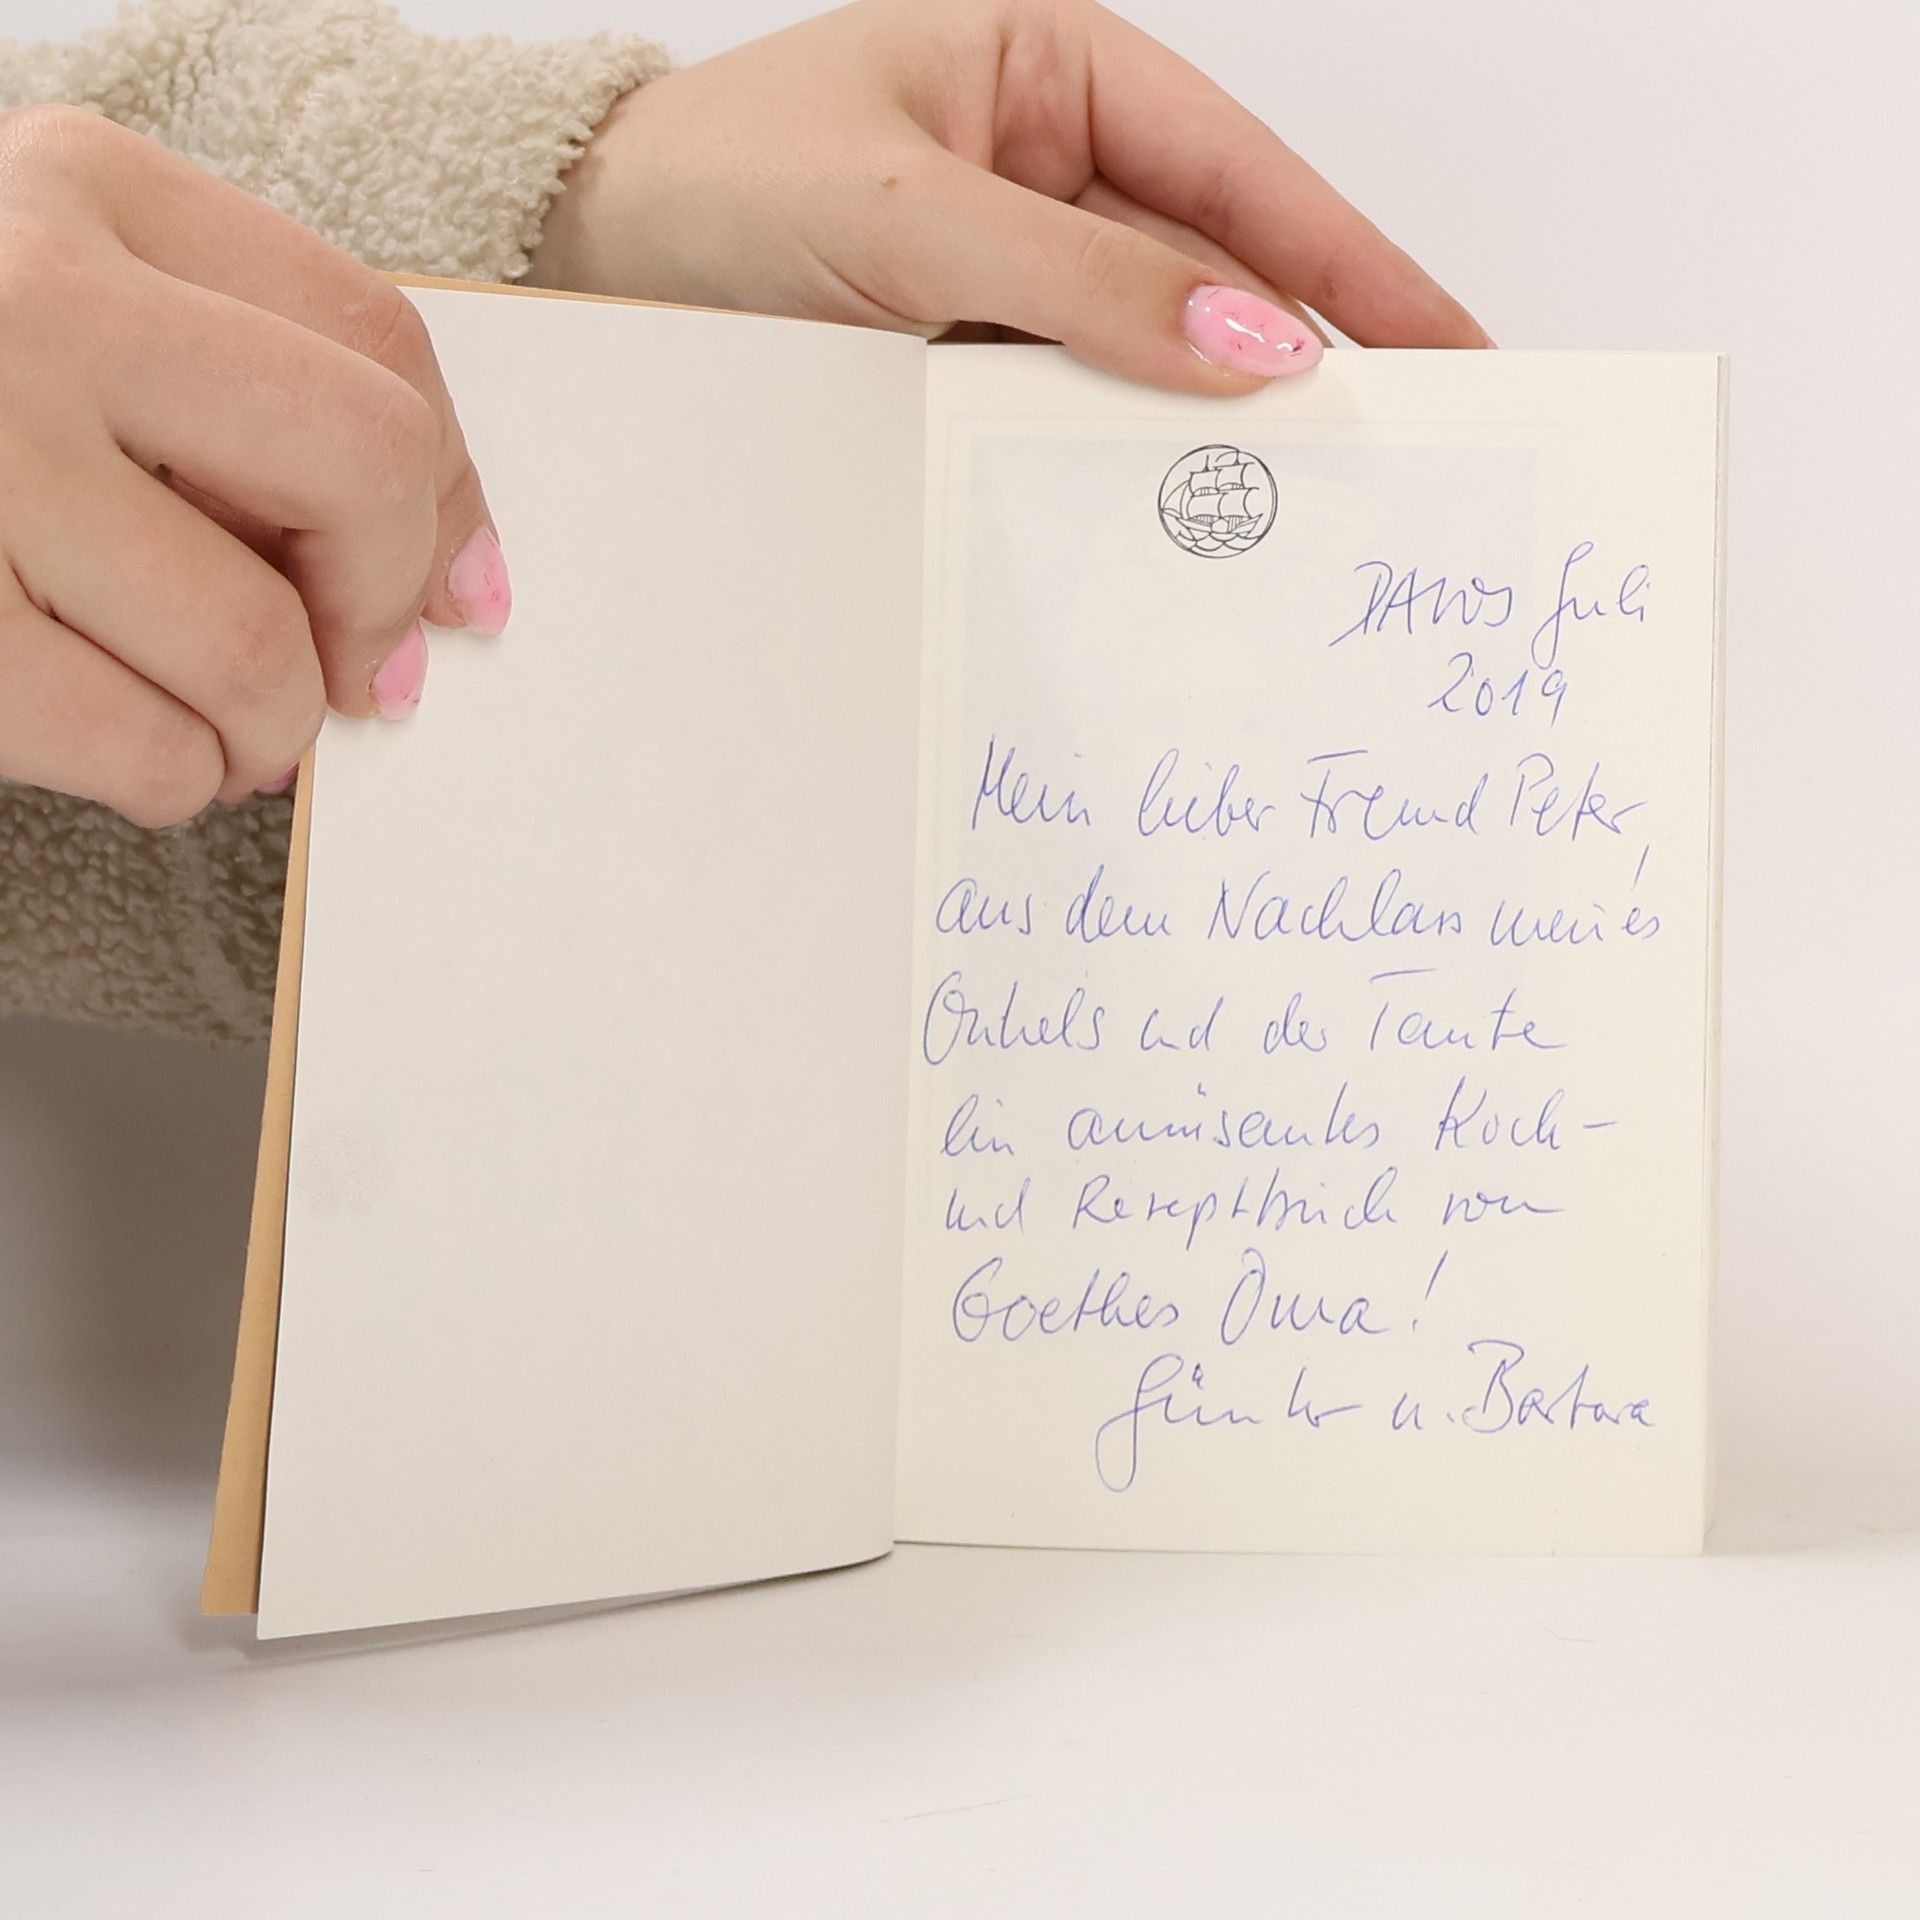 DAVOS Juli
2019
Mein lieber Freund Peter,
aus dem Nachlass meines
Onkels und der Tante
ein amüsantes Koch-
und Rezeptbuch von
Goethes Oma!
Günter u. Barbara